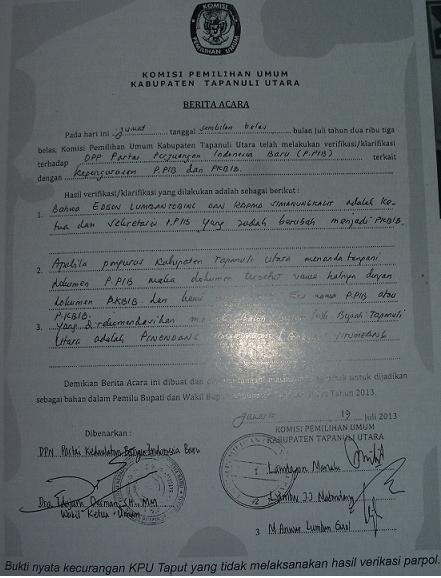 KOMISI PEMILIHAN UMUM
KOMISI PEMILIHAN UMUM
KABUPATEN TAPANULI UTARA
BERITA ACARA
Pada hari ini jumat tanggal sembilan belas bulan Juli tahun dua ribu tiga
belas, Komisi Pemilihan Umum Kabupaten Tapanuli Utara telah melakukan verifikasi/klarifikasi
terhadap DPP Partai Perjuangan Indonesia Baru (P.PIB) terkait
dengan kepengurusan P.PIB dan PKBIB.
Hasil verifikasi/klarifikasi yang dilakukan adalah sebagai berikut :
1. Bahwa EDSON LUMBANTOBING dan SIMANUNGKALIT adalah ke-
tua dan sekretaris P.PIB yang sudah berubah menjadi PKBIB.
2. Apabila pengurus Kabupaten Tapanuli Utara menanda tangani
dokumen P.PIB maka dokumen tersebut sama halnya dengan
dokumen PKBIB dan nama P.PIB atau
PKBIB.
3. yang direkomendasikan Bupati Tapanuli
Utara adalah PINONDANG SITUMEANG
Demikian Berita Acara ini dibuat dan untuk dijadikan
sebagai bahan dalam Pemilu Bupati dan Wakil Bupati Tahun 2013.
Jakarta 19 Juli 2013
KOMISI PEMILIHAN UMUM
KABUPATEN TAPANULI UTARA
Dibenarkan :
DPN Partai Kedaulatan Bangsa Indonesia Baru
SH., MM
Wakil Ketua Umum
1 Lamtagon Manalu
2
3 M Anwar Lumban Gaol
Bukti nyata kecurangan KPU Taput yang tidak melaksanakan hasil verikasi parpol.